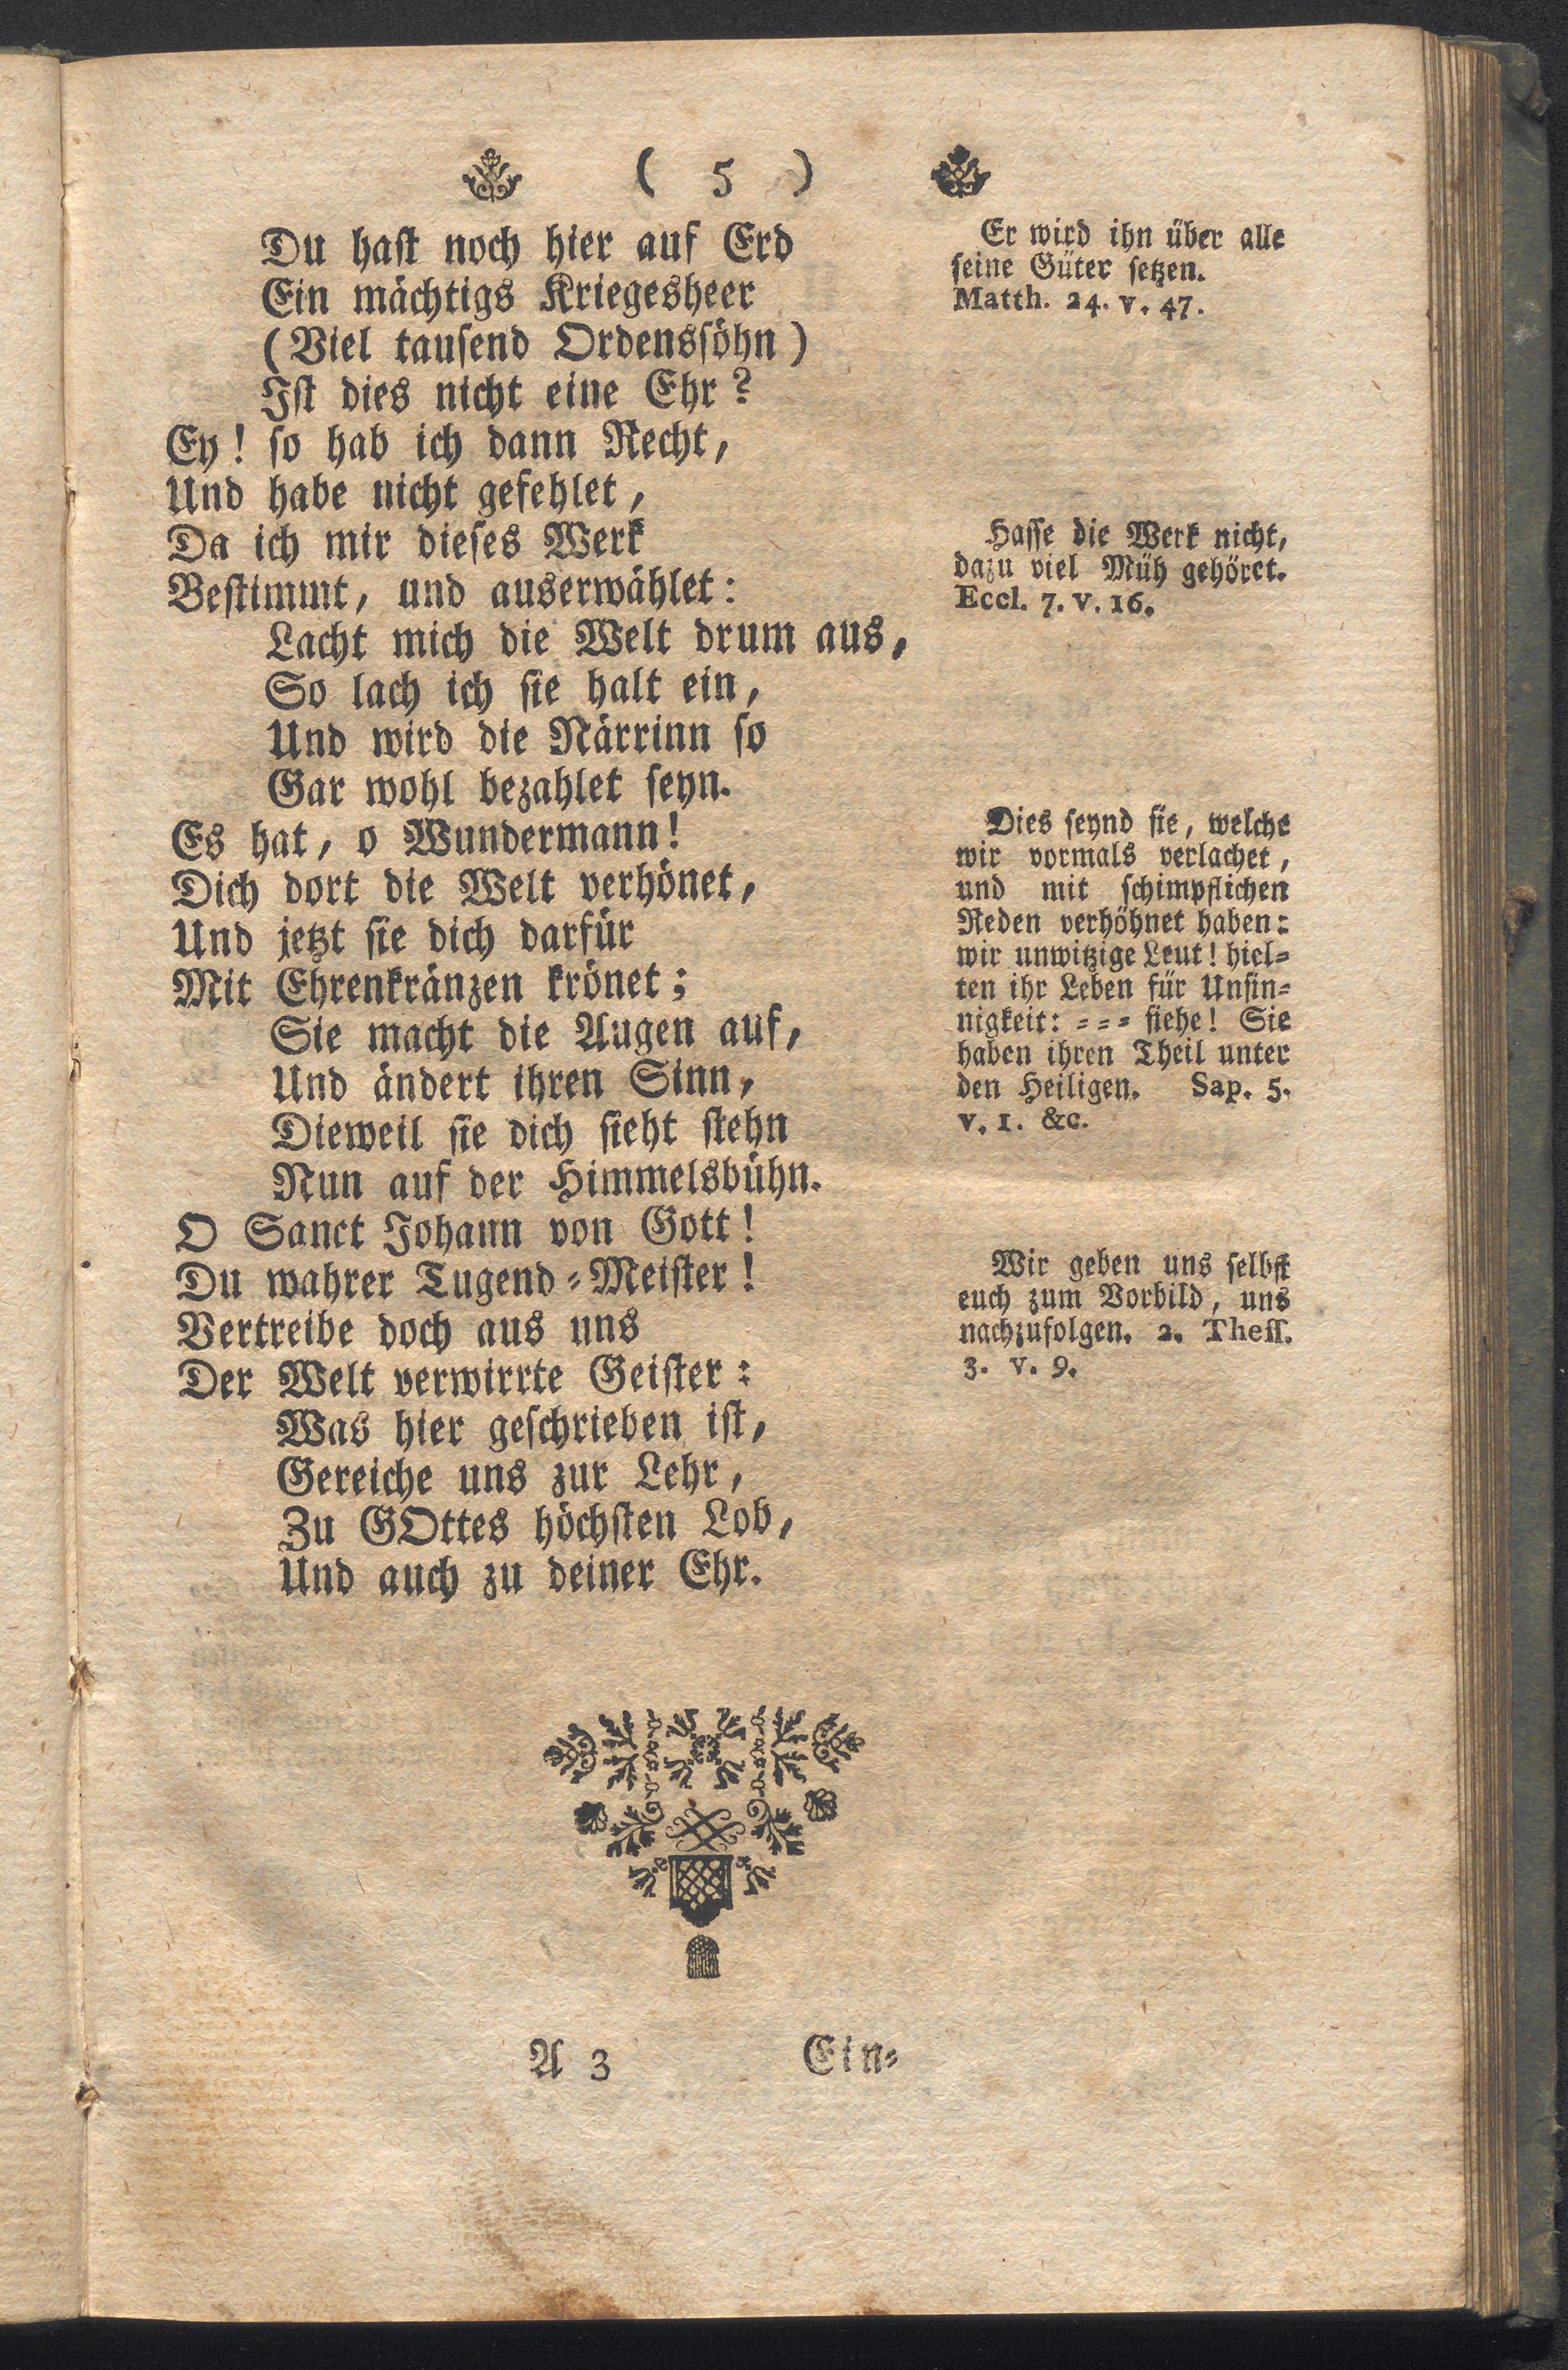 ( 5 )
Du haſt noch hier auf Erd
Ein mächtigs Kriegesheer
(Viel tauſend Ordensſöhn)
Iſt dies nicht eine Ehr?
Ey! ſo hab ich dann Recht,
Und habe nicht gefehlet,
Da ich mir dieſes Werk
Beſtimmt, und auserwählet:
Lacht mich die Welt drum aus,
So lach ich ſie halt ein,
Und wird die Närrinn ſo
Gar wohl bezahlet ſeyn.
Es hat, o Wundermann!
Dich dort die Welt verhönet,
Und jetzt ſie dich darfür
Mit Ehrenkränzen krönet;
Sie macht die Augen auf,
Und ändert ihren Sinn,
Dieweil ſie dich ſieht ſtehn
Nun auf der Himmelsbühn.
O Sanct Johann von Gott!
Du wahrer Tugend-Meiſter!
Vertreibe doch aus uns
Der Welt verwirrte Geiſter:
Was hier geſchrieben iſt,
Gereiche uns zur Lehr,
Zu GOttes höchſten Lob,
Und auch zu deiner Ehr.
Er wird ihn über alle
ſeine Güter ſetzen.
Matth. 24. v. 47.
Haſſe die Werk nicht,
dazu viel Müh gehöret.
Eccl. 7. v. 16.
Dies ſeynd ſie, welche
wir vormals verlachet,
und mit ſchimpflichen
Reden verhöhnet haben:
wir unwitzige Leut! hiel-
ten ihr Leben für Unſin-
nigkeit: - - - ſiehe! Sie
haben ihren Theil unter
den Heiligen. Sap. 5.
v. 1. &c.
Wir geben uns ſelbſt
euch zum Vorbild, uns
nachzufolgen. 2. Theſſ.
3. v. 9.
A 3 Ein-